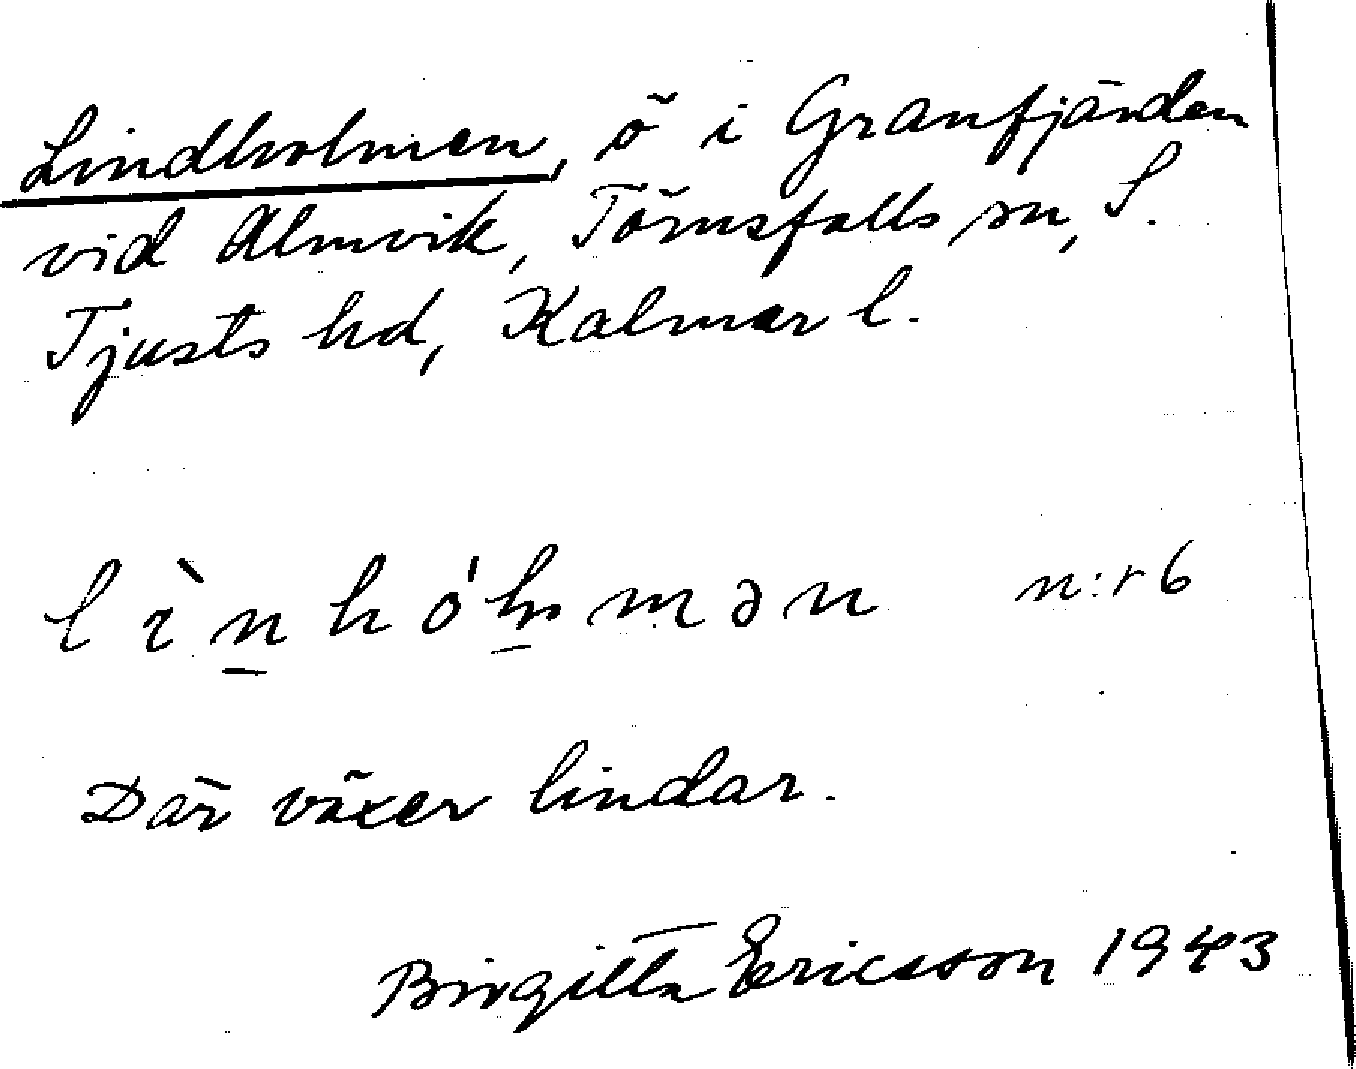 Lindholmen, ö i Granfjärden
vid Almvik, Törnsfalls sn, S.
Tjusts hd, Kalmar l.
lìnhólmən n:r 6
Där växer lindar.
Birgitta Ericsson 1943